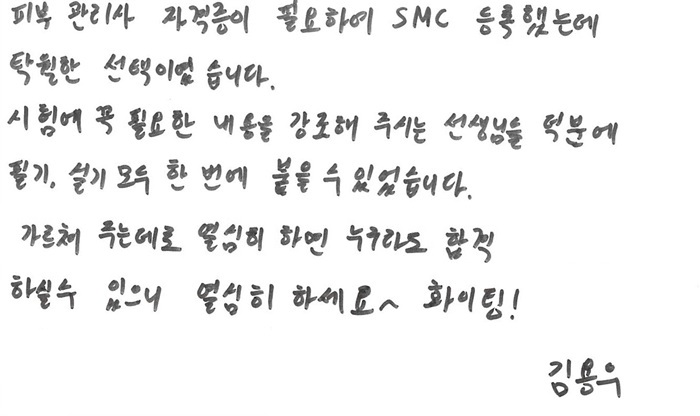 피부 관리사 자격증이 필요하여 SMC 등록했는데
탁월한 선택이었습니다.
시험에 꼭 필요한 내용을 강조해 주시는 선생님들 덕분에
필기, 실기 모두 한 번에 붙을 수 있었습니다.
가르쳐 주는데로 열심히 하면 누구라도 합격
하실수 있으니 열심히 하세요~ 화이팅!
김용우